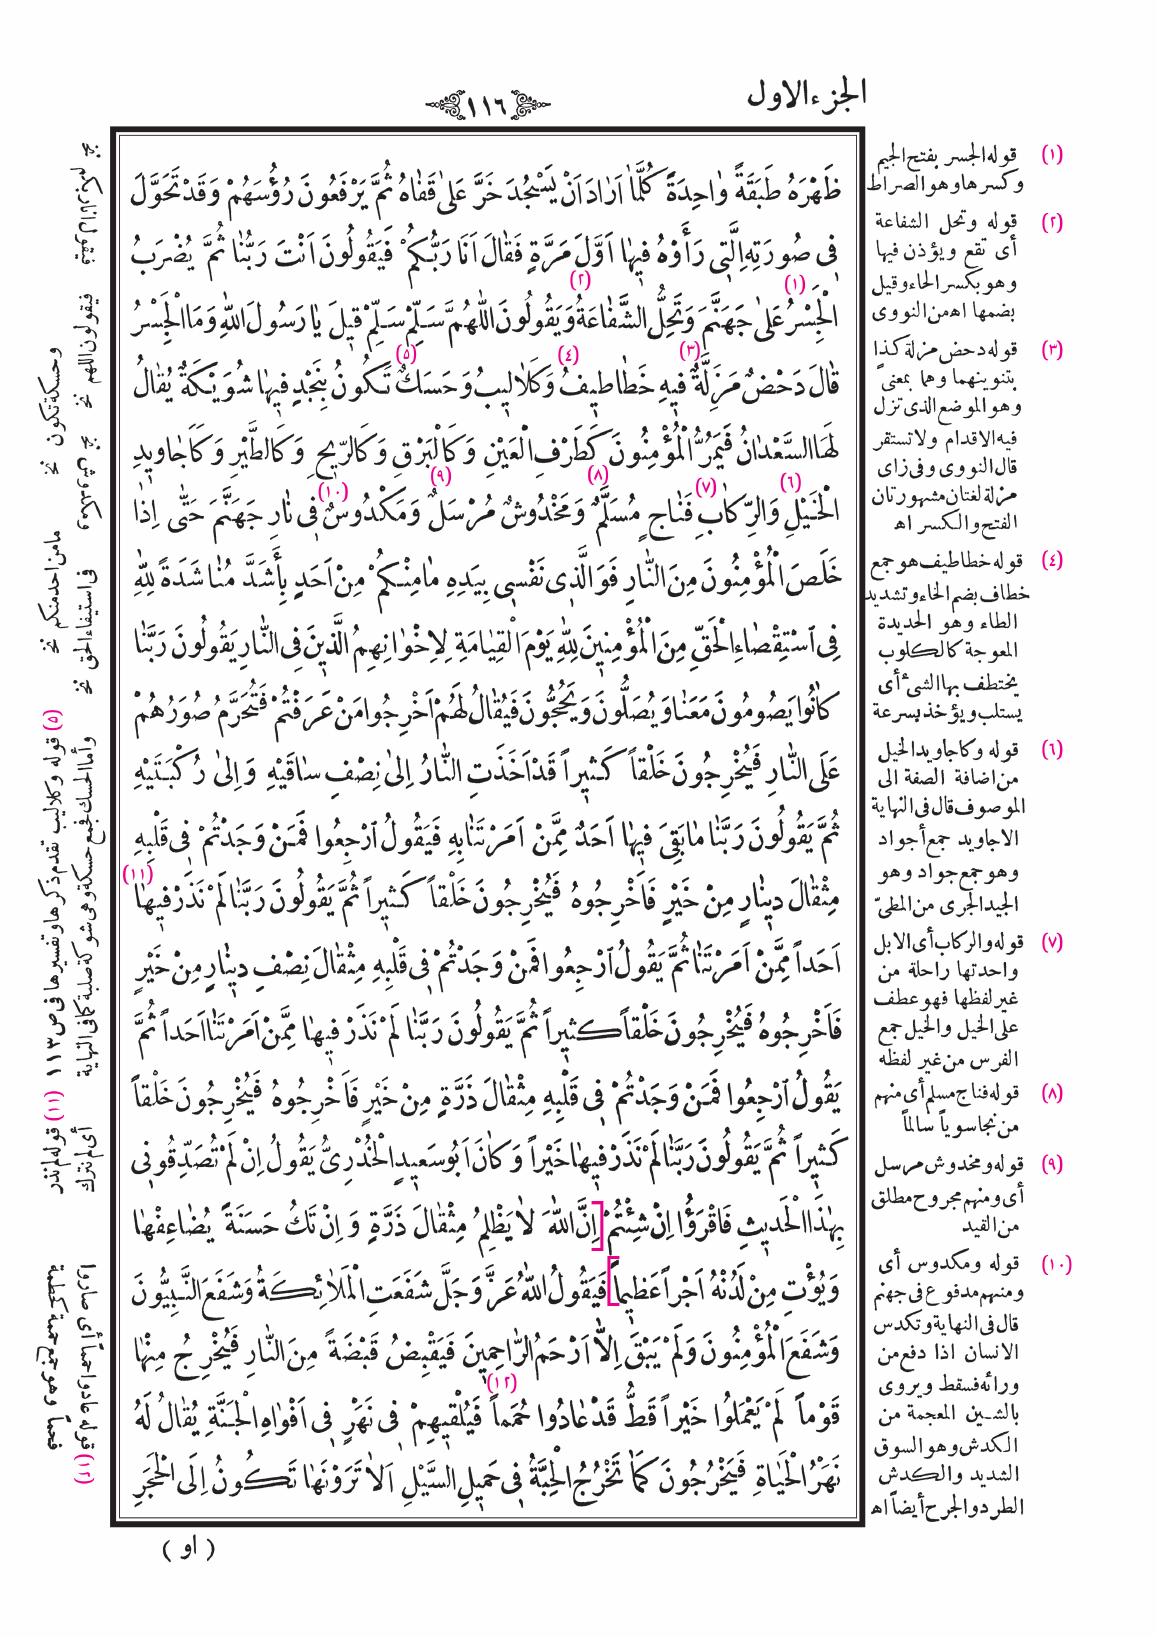 الجزء الاول
١١٦
ظَهْرَهُ طَبَقَةً وَاحِدَةً كُلَّمَا اَرَادَ اَنْ يَسْجُدَ خَرَّ عَلىٰ قَفَاهُ ثُمَّ يَرْفَعُونَ رُؤُسَهُمْ وَقَدْ تَحَوَّلَ
فِى صُورَتِهِ الَّتِى رَأَوْهُ فِيهَا اَوَّلَ مَرَّةٍ فَقَالَ اَنَا رَبُّكُمْ فَيَقُولُونَ اَنْتَ رَبُّنَا ثُمَّ يُضْرَبُ
الْجِسْرُ (١) عَلىٰ جَهَنَّمَ وَتَحِلُّ الشَّفَاعَةُ (٢) وَيَقُولُونَ اللّٰهُمَّ سَلِّمْ سَلِّمْ قِيلَ يَا رَسُولَ اللّٰهِ وَمَا الْجِسْرُ
قَالَ دَحْضٌ مَزِلَّةٌ (٣) فِيهِ خَطَاطِيفُ (٤) وَكَلَالِيبُ (٥) وَحَسَكٌ تَكُونُ بِنَجْدٍ فِيهَا شُوَيْكَةٌ يُقَالُ
لَهَا السَّعْدَانُ فَيَمُرُّ الْمُؤْمِنُونَ كَطَرْفِ الْعَيْنِ وَكَالْبَرْقِ وَكَالرِّيحِ وَكَالطَّيْرِ وَكَاَجَاوِيدِ
الْخَيْلِ (٦) وَالرِّكَابِ (٧) فَنَاجٍ مُسَلَّمٌ (٨) وَمَخْدُوشٌ مُرْسَلٌ (٩) وَمَكْدُوسٌ (١٠) فِى نَارِ جَهَنَّمَ حَتّٰى اِذَا
خَلَصَ الْمُؤْمِنُونَ مِنَ النَّارِ فَوَالَّذِى نَفْسِى بِيَدِهِ مَا مِنْكُمْ مِنْ اَحَدٍ بِأَشَدَّ مُنَاشَدَةً لِلّٰهِ
فِى اسْتِقْصَاءِ الْحَقِّ مِنَ الْمُؤْمِنِينَ لِلّٰهِ يَوْمَ الْقِيَامَةِ لِاِخْوَانِهِمُ الَّذِينَ فِى النَّارِ يَقُولُونَ رَبَّنَا
كَانُوا يَصُومُونَ مَعَنَا وَيُصَلُّونَ وَيَحُجُّونَ فَيُقَالُ لَهُمْ اَخْرِجُوا مَنْ عَرَفْتُمْ فَتُحَرَّمُ صُوَرُهُمْ
عَلَى النَّارِ فَيُخْرِجُونَ خَلْقاً كَثِيراً قَدْ اَخَذَتِ النَّارُ اِلىٰ نِصْفِ سَاقَيْهِ وَاِلىٰ رُكْبَتَيْهِ
ثُمَّ يَقُولُونَ رَبَّنَا مَا بَقِىَ فِيهَا اَحَدٌ مِمَّنْ اَمَرْتَنَا بِهِ فَيَقُولُ ارْجِعُوا فَمَنْ وَجَدْتُمْ فِى قَلْبِهِ
مِثْقَالَ دِينَارٍ مِنْ خَيْرٍ فَاَخْرِجُوهُ فَيُخْرِجُونَ خَلْقاً كَثِيراً ثُمَّ يَقُولُونَ رَبَّنَا لَمْ نَذَرْ فِيهَا (١١)
اَحَداً مِمَّنْ اَمَرْتَنَا ثُمَّ يَقُولُ ارْجِعُوا فَمَنْ وَجَدْتُمْ فِى قَلْبِهِ مِثْقَالَ نِصْفِ دِينَارٍ مِنْ خَيْرٍ
فَاَخْرِجُوهُ فَيُخْرِجُونَ خَلْقاً كَثِيراً ثُمَّ يَقُولُونَ رَبَّنَا لَمْ نَذَرْ فِيهَا مِمَّنْ اَمَرْتَنَا اَحَداً ثُمَّ
يَقُولُ ارْجِعُوا فَمَنْ وَجَدْتُمْ فِى قَلْبِهِ مِثْقَالَ ذَرَّةٍ مِنْ خَيْرٍ فَاَخْرِجُوهُ فَيُخْرِجُونَ خَلْقاً
كَثِيراً ثُمَّ يَقُولُونَ رَبَّنَا لَمْ نَذَرْ فِيهَا خَيْراً وَكَانَ اَبُو سَعِيدٍ الْخُدْرِىُّ يَقُولُ اِنْ لَمْ تُصَدِّقُونِى
بِهٰذَا الْحَدِيثِ فَاقْرَؤُا اِنْ شِئْتُمْ [اِنَّ اللّٰهَ لَا يَظْلِمُ مِثْقَالَ ذَرَّةٍ وَاِنْ تَكُ حَسَنَةً يُضَاعِفْهَا
وَيُؤْتِ مِنْ لَدُنْهُ اَجْراً عَظِيماً] فَيَقُولُ اللّٰهُ عَزَّ وَجَلَّ شَفَعَتِ الْمَلَائِكَةُ وَشَفَعَ النَّبِيُّونَ
وَشَفَعَ الْمُؤْمِنُونَ وَلَمْ يَبْقَ اِلَّا اَرْحَمُ الرَّاحِمِينَ فَيَقْبِضُ قَبْضَةً مِنَ النَّارِ فَيُخْرِجُ مِنْهَا
قَوْماً لَمْ يَعْمَلُوا خَيْراً قَطُّ قَدْ عَادُوا حُمَماً (١٢) فَيُلْقِيهِمْ فِى نَهَرٍ فِى اَفْوَاهِ الْجَنَّةِ يُقَالُ لَهُ
نَهَرُ الْحَيَاةِ فَيَخْرُجُونَ كَمَا تَخْرُجُ الْحِبَّةُ فِى حَمِيلِ السَّيْلِ اَلَا تَرَوْنَهَا تَكُونُ اِلَى الْحَجَرِ
( او )
(١) قوله الجسر بفتح الجيم
وكسرها وهو الصراط
(٢) قوله وتحل الشفاعة
أى تقع ويؤذن فيها
وهو بكسر الحاء وقيل
بضمها اه من النووى
(٣) قوله دحض مزلة كذا
بتنوينهما وهما بمعنى
وهو الموضع الذى تزل
فيه الاقدام ولا تستقر
قال النووى وفى زاى
مزلة لغتان مشهورتان
الفتح والكسر اه
(٤) قوله خطاطيف هو جمع
خطاف بضم الخاء وتشديد
الطاء وهو الحديدة
المعوجة كالكلوب
يختطف بها الشىء أى
يستلب ويؤخذ بسرعة
(٦) قوله وكاجاويد الخيل
من اضافة الصفة الى
الموصوف قال فى النهاية
الاجاويد جمع أجواد
وهو جمع جواد وهو
الجيد الجرى من المطىّ
(٧) قوله والركاب أى الابل
واحدتها راحلة من
غير لفظها فهو عطف
على الخيل والخيل جمع
الفرس من غير لفظه
(٨) قوله فناج مسلم أى منهم
من نجا سوياً سالماً
(٩) قوله ومخدوش مرسل
أى ومنهم مجروح مطلق
من القيد
(١٠) قوله ومكدوس أى
ومنهم مدفوع فى جهنم
قال فى النهاية وتكدس
الانسان اذا دفع من
ورائه فسقط ويروى
بالشين المعجمة من
الكدش وهو السوق
الشديد والكدش
الطرد والجرح أيضاً اه
فيقول انا ربكم نخ
فيقولون اللهم نخ
ومكدوس نخ
فى استيفاء الحق نخ
وحسكة تكون نخ
ما من احد منكم نخ
(٥) قوله وكلاليب تقدم ذكرها وتفسيرها فى ص ١١٣
وأما الحسك فجمع حسكة وهى شوكة صلبة كما فى النهاية
(١١) قوله لم نذر
أى لم نترك
(١٢) قوله عادوا حمماً أى صاروا
فحماً وهو جمع حممة كحطمة